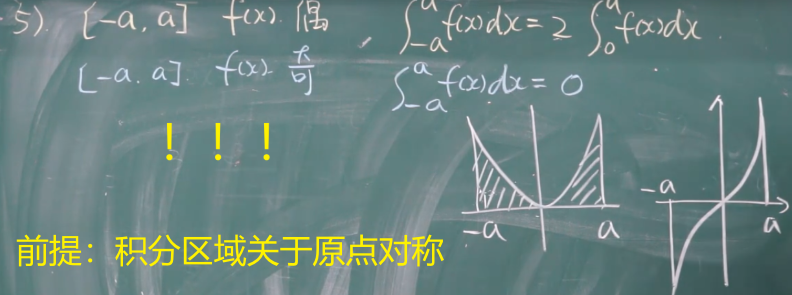 5). [-a, a] f(x). 偶 ∫_{-a}^{a} f(x)dx = 2 ∫_{0}^{a} f(x)dx.
[-a, a]. f(x). 奇 ∫_{-a}^{a} f(x)dx = 0
！！！
-a a
-a a
前提：积分区域关于原点对称